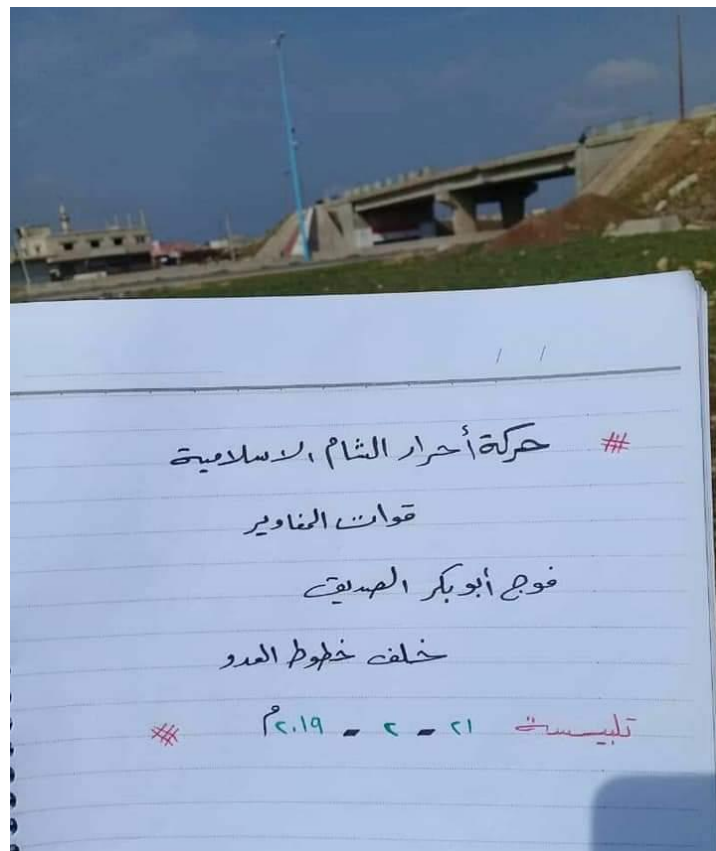 # حركة أحرار الشام الاسلامية
قوات المغاوير
فوج أبو بكر الصديق
خلف خطوط العدو
تلبيسة ٢١ - ٢ - ٢٠١٩م #